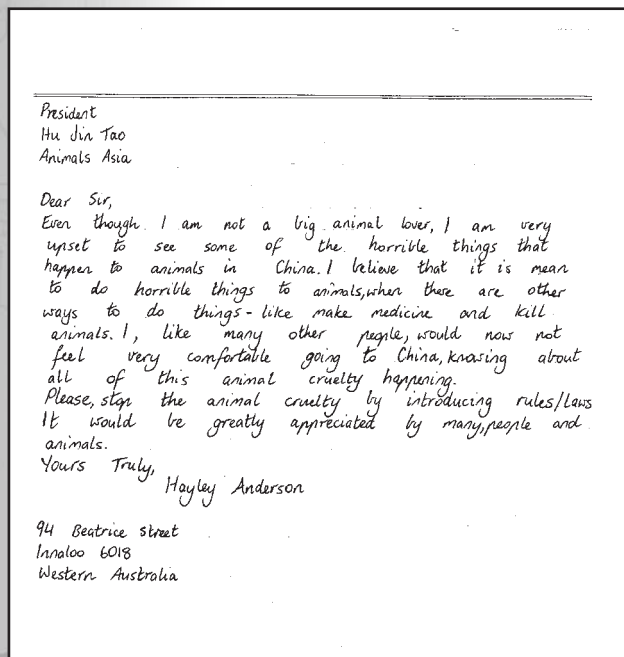 President
Hu Jin Tao
Animals Asia
Dear Sir,
Even though I am not a big animal lover, I am very
upset to see some of the horrible things that
happen to animals in China. I believe that it is mean
to do horrible things to animals, when there are other
ways to do things - like make medicine and kill
animals. I, like many other people, would now not
feel very comfortable going to China, knowing about
all of this animal cruelty happening.
Please, stop the animal cruelty by introducing rules/laws
It would be greatly appreciated by many, people and
animals.
Yours Truly,
Hayley Anderson
94 Beatrice street
Innaloo 6018
Western Australia